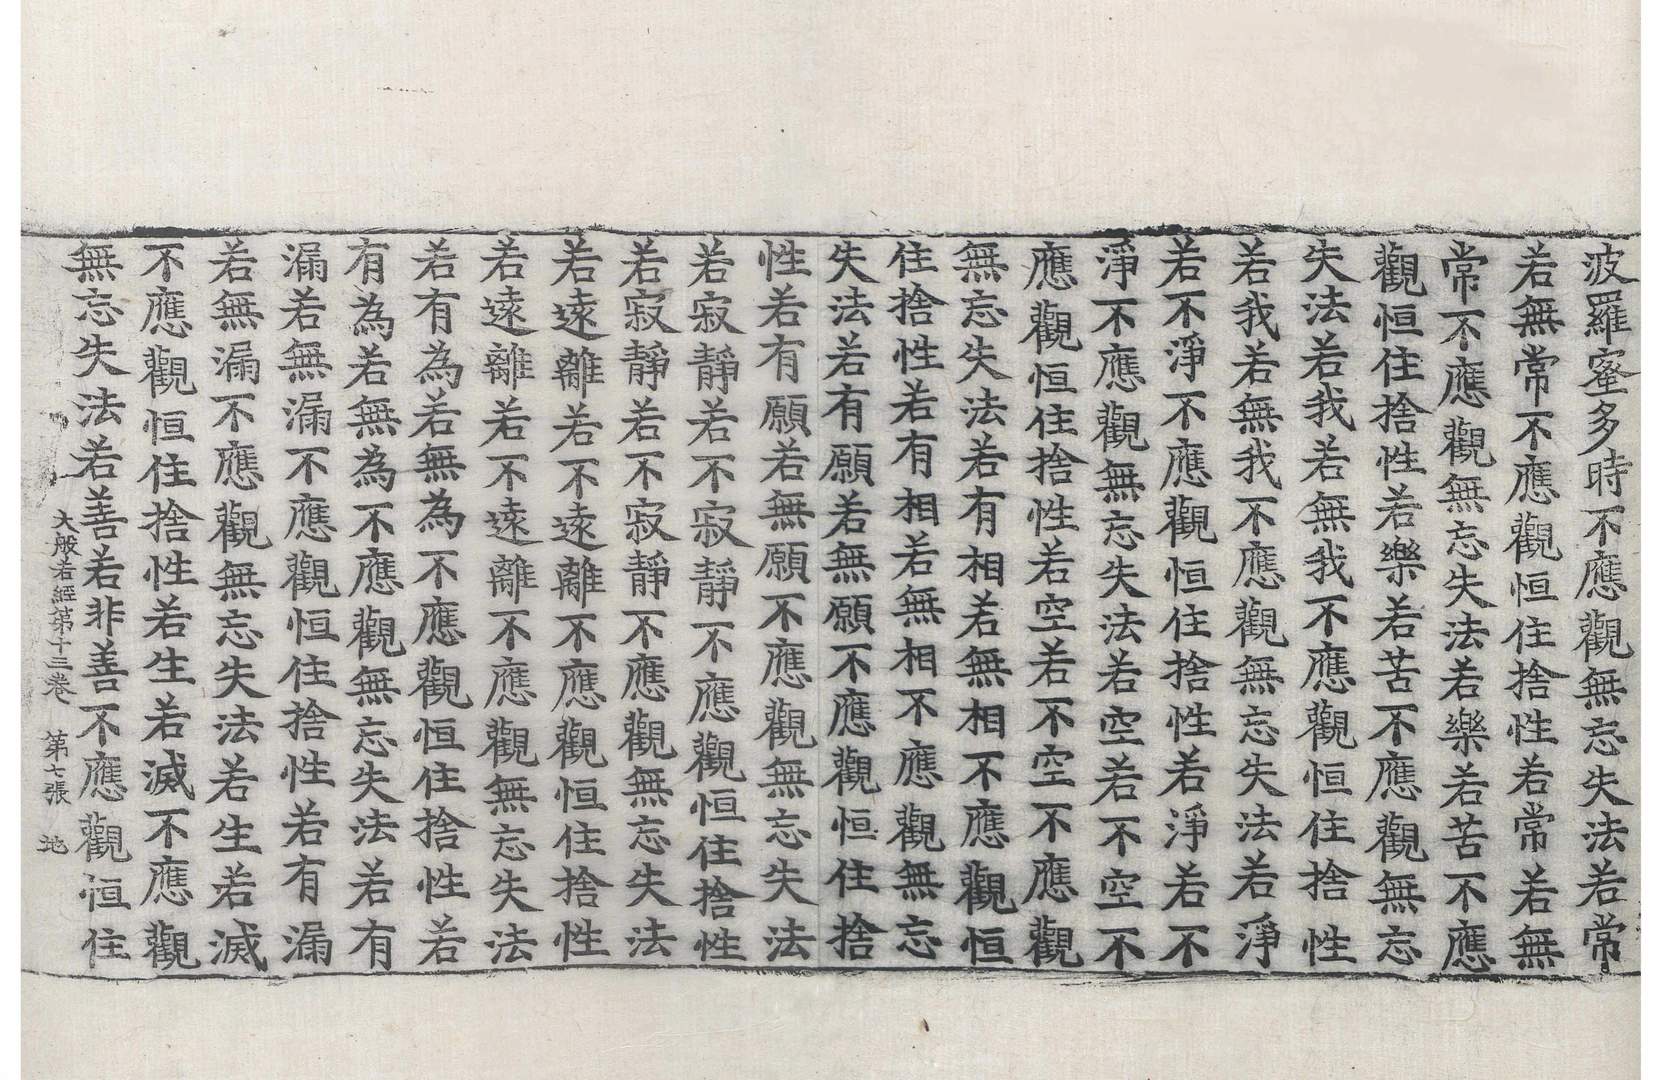 波羅蜜多時不應觀無忘失法若常
若無常不應觀恒住捨性若常若無
常不應觀無忘失法若樂若苦不應
觀恒住捨性若樂若苦不應觀無忘
失法若我若無我不應觀恒住捨性
若我若無我不應觀無忘失法若淨
若不淨不應觀恒住捨性若淨若不
淨不應觀無忘失法若空若不空不
應觀恒住捨性若空若不空不應觀
無忘失法若有相若無相不應觀恒
住捨性若有相若無相不應觀無忘
失法若有願若無願不應觀恒住捨
性若有願若無願不應觀無忘失法
若寂靜若不寂靜不應觀恒住捨性
若寂靜若不寂靜不應觀無忘失法
若遠離若不遠離不應觀恒住捨性
若遠離若不遠離不應觀無忘失法
若有為若無為不應觀恒住捨性若
有為若無為不應觀無忘失法若有
漏若無漏不應觀恒住捨性若有漏
若無漏不應觀無忘失法若生若滅
不應觀恒住捨性若生若滅不應觀
無忘失法若善若非善不應觀恒住
大般若經第十三卷　第七張　池